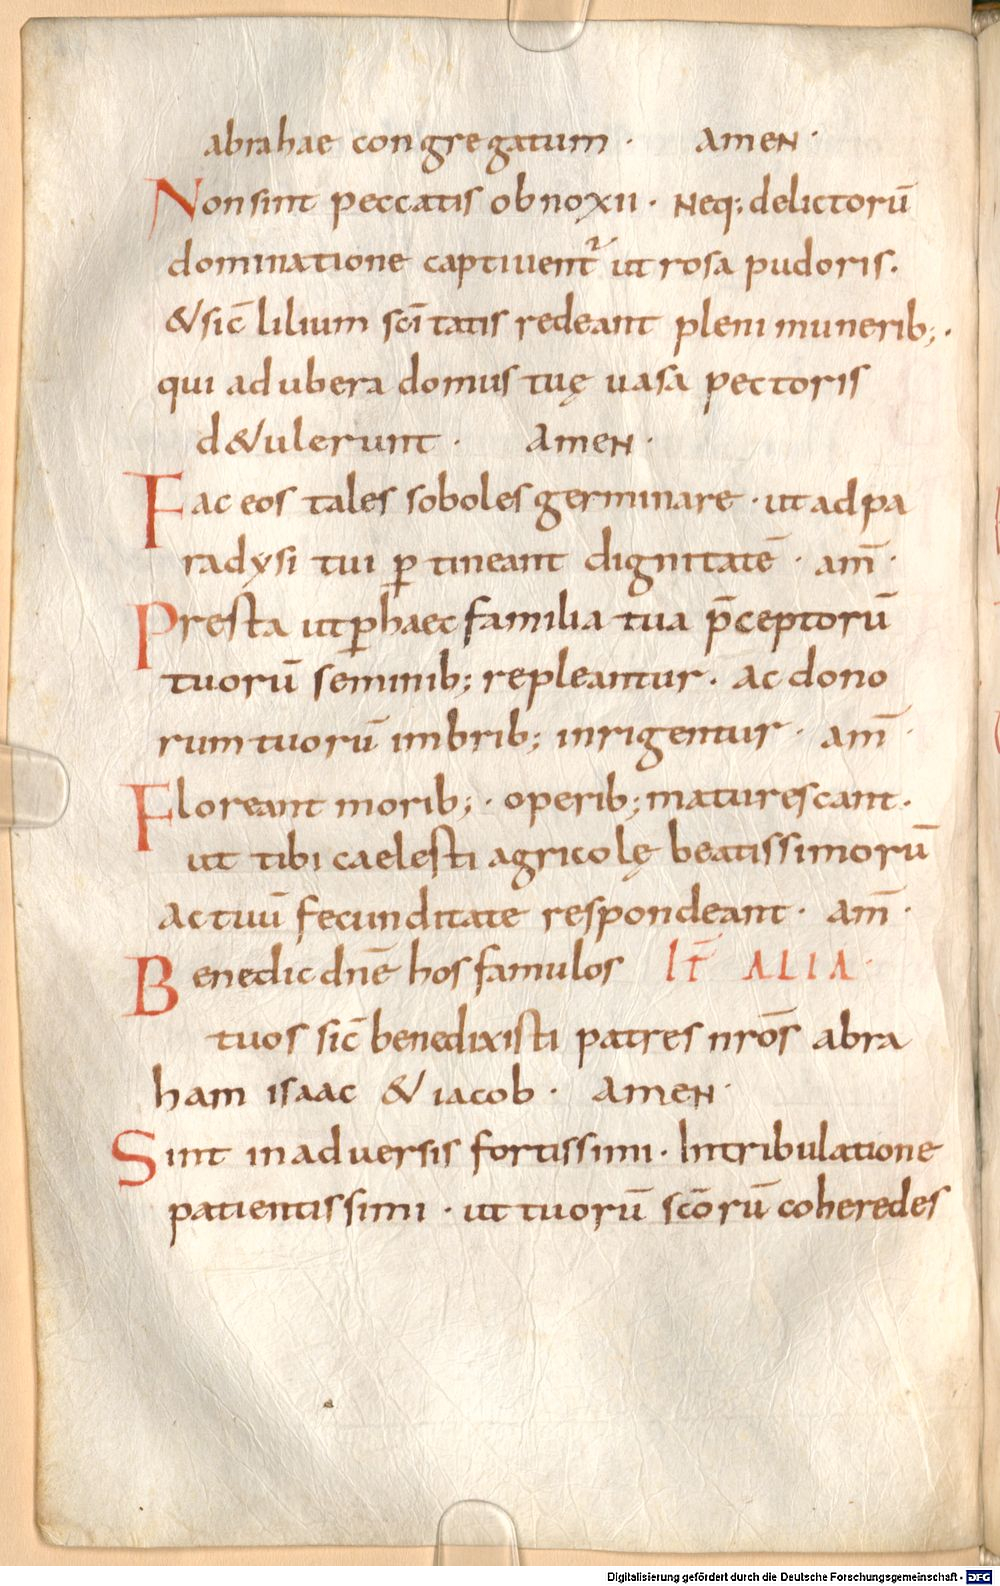 abrahae congregatum · Amen ·
Non sint peccatis obnoxii · Neq; delictorū
dominatione captiuent᷑ ut rosa pudoris.
& sic̄ lilium sc̄itatis redeant pleni munerib; ·
qui ad ubera domus tuę uasa pectoris
d&ulerunt · Amen ·
Fac eos tales soboles germinare · ut ad pa
radysi tui ꝑtineant dignitatē · am̄ ·
Presta ut ꝑ haec familia tua p̄ceptorū
tuorū seminib; repleantur · Ac dono
rum tuorū imbrib; inrigentur · am̄ ·
Floreant morib; · operib; maturescant ·
ut tibi caelesti agricolę beatissimorū
Actuū fecunditate respondeant · Am̄ ·
Benedic dn̄e hos famulos It̄ ALIA ·
tuos sic̄ benedixisti patres nr̄os abra
ham isaac & iacob · Amen ·
Sint in aduersis fortissimi · In tribulatione
patientissimi · ut tuorū sc̄orū coheredes
Digitalisierung gefördert durch die Deutsche Forschungsgemeinschaft - DFG